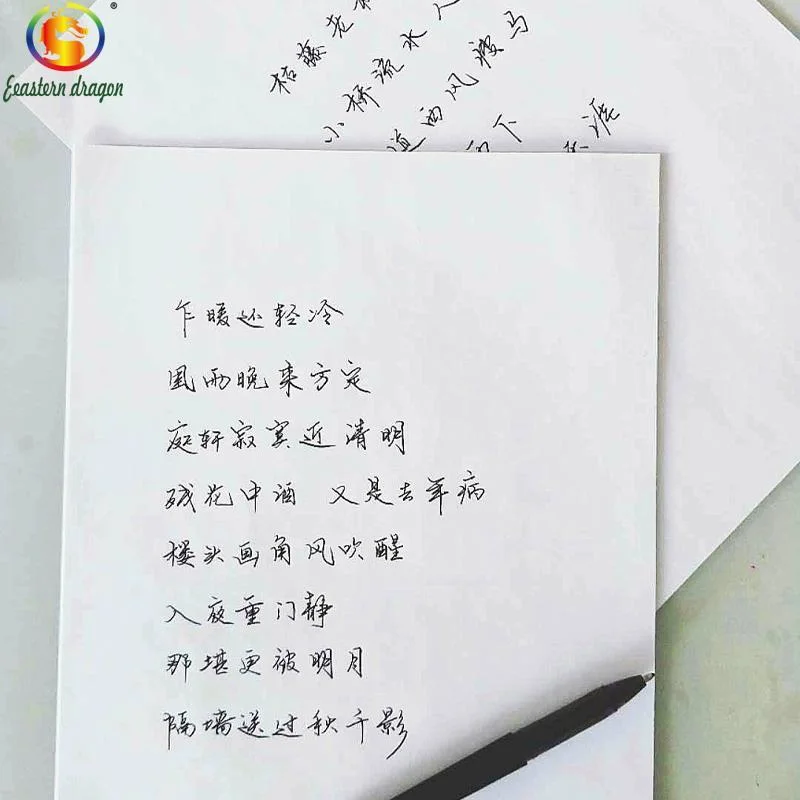 ®
Eeastern dragon
枯藤老
小桥流水人
道西风瘦马
西下
涯
乍暖还轻冷
風雨晚来方定
庭轩寂寞近清明
残花中酒 又是去年病
楼头画角风吹醒
入夜重门静
那堪更被明月
隔墙送过秋千影